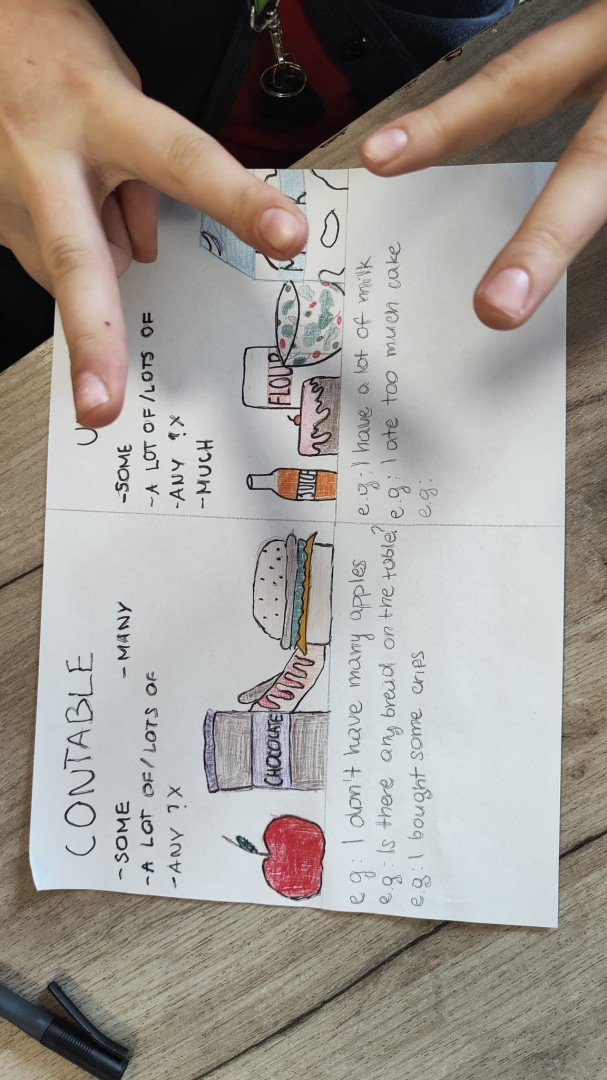 CONTABLE
-SOME
-MANY
-A LOT OF/LOTS OF
-ANY ?X
CHOCOLATE
e g: I don't have many apples
e.g.: Is there any bread on the table?
e.g: I bought some crips
U
-SOME
-A LOT OF/LOTS OF
-ANY ?X
-MUCH
JUICE
FLOUR
e.g: I have a lot of milk
e.g: I ate too much cake
e.g: